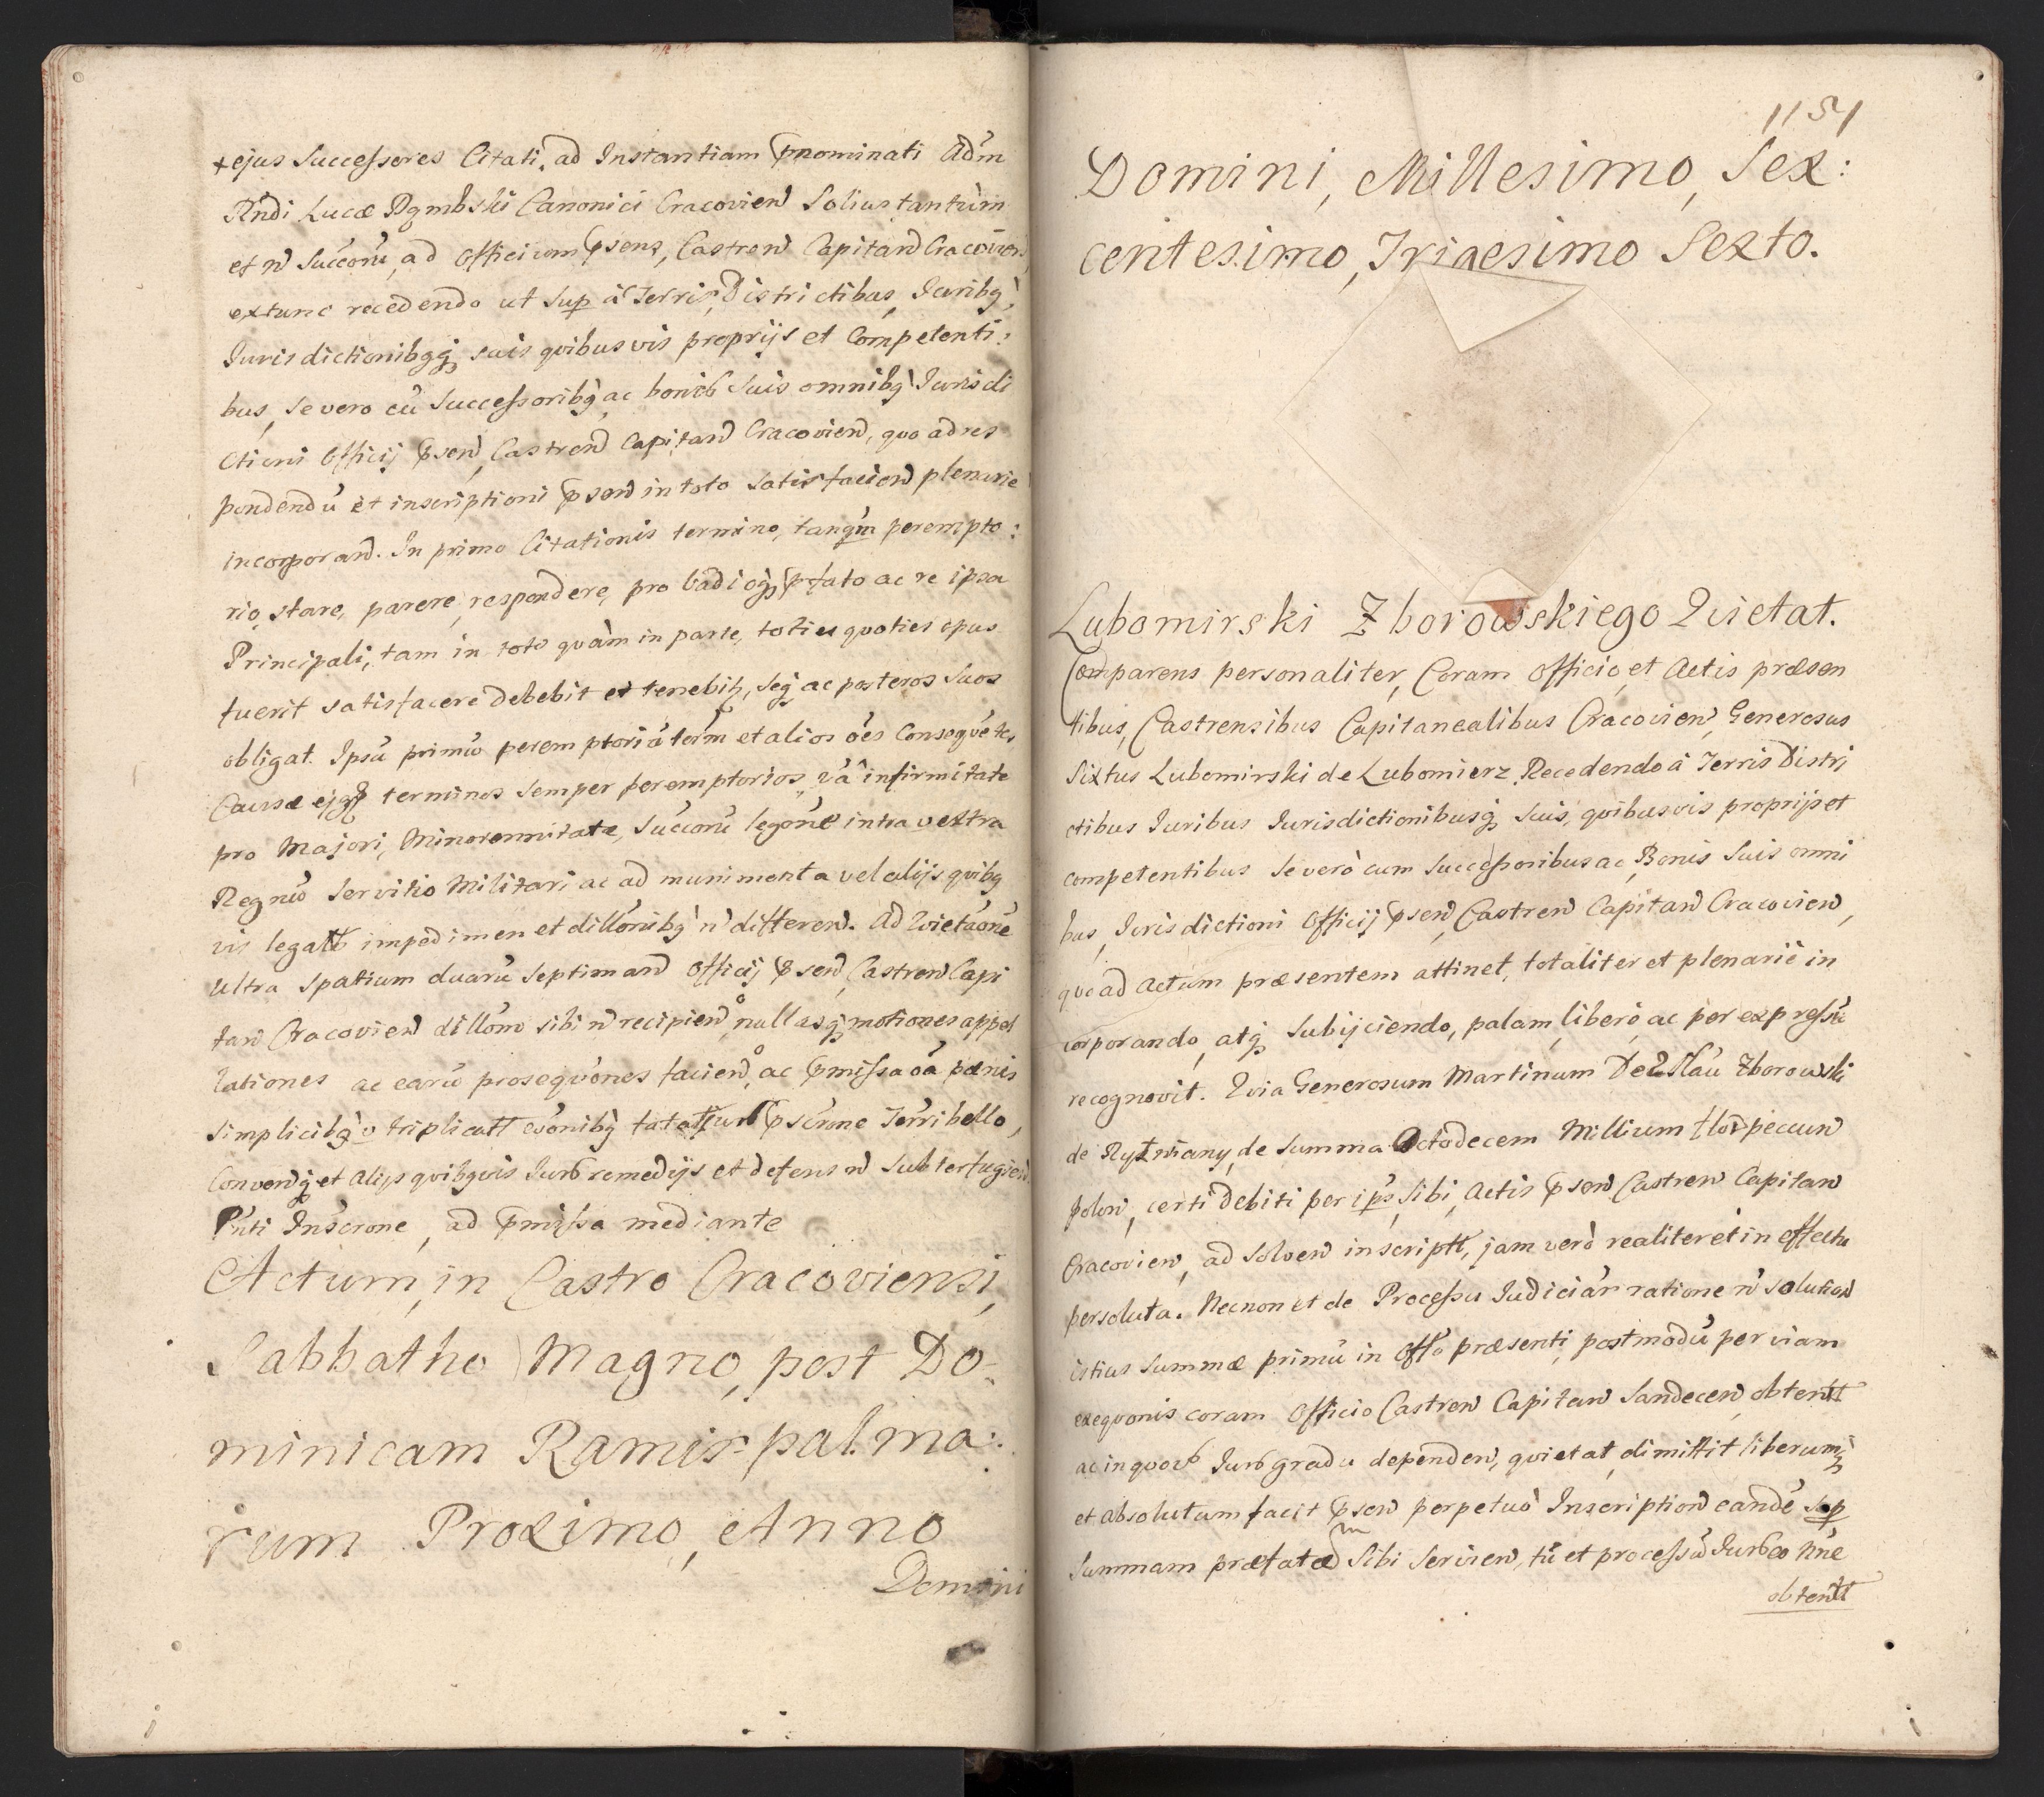 ejus Successores Citati, ad Instantiam pnominati Adm
Rndi Lucæ Dąmbski Canonici Cracovien Solius tantum
et n Succorū, ad officium psens, Castren Capitan Cracovien
extunc recedendo ut sup à Terris, Districtibus, Juribq,
Jurisdictionibqq suis quibusvis proprijs et Competenti:
bus, se vero cū Successoribq ac bonis suis omnibq Jurisdi
ctioni Officij psen, Castren Capitan Cracovien, quo ad res
pondendū et inscriptioni psen in toto satisfacien plenarie
incorporan. In primo Citationis termino, tanqm perempto:
rio, stare, parere, respondere, pro vadioq pfato ac re ipsa
Principali, tam in toto quàm in parte, toties quoties opus
fuerit satisfacere debebit et tenebit, seq ac posteros suos
obligat. Ipsū primū peremptoriū term et alios oēs Consequētes
Causæ ejqq terminos semper peremptorios, vā infirmitate
pro Majori, Minorennitate, Succorū legōne intra v extra
Regnū servitio Militari ac ad munimenta vel alijs quibq
vis legatt impedimen et dillōnibq n differen. Ad Quietāone
ultra spatium duarū septiman Officij psen, Castren Capi
tan Cracovien dillōm sibi n recipien, nullasq motiones appel
lationes ac earū prosequōnes facien, ac pmissa oā pœnis
simplicibq v triplicatt evōnibq
Convenq et alijs quibqvis Jurb remedijs et defens n subterfugien.
Pnti Inscrone, ad pmissa mediante
Actum, in Castro Cracoviensi,
Sabbatho Magno, post Do-
minicam Ramis palma:
rum Proximo, Anno
Domini
1151
Domini, Millesimo, Sex:
centesimo, Trigesimo Sexto.
Lubomirski Zborowskiego Quietat.
Comparens personaliter, Coram Officio, et Actis præsen
tibus, Castrensibus Capitanealibus Cracovien, Generosus
Sixtus Lubomirski de Lubomierz Recedendo à Terris Distri
ctibus Juribus Jurisdictionibusq suis, quibusvis proprijs et
competentibus se verò cum successoribus ac Bonis suis omni
bus, Jurisdictioni Officij psen, Castren Capitan Cracovien,
quo ad Actum præsentem attinet, totaliter et plenariè in
corporando, atq subijciendo, palam, liberò ac per expressū
recognovit. Quia Generosum Martinum Zborowski
de Rytwiany, de summa Octodecem Millium flor pecun
polon, certi debiti per ips sibi, Actis psen Castren Capitan
Cracovien, ad solven inscriptt, jam verò realiter et in effectu
persoluta. Necnon et de Processu Judiciar ratione n solution
istius summæ primū in Offo præsenti, postmodū per viam
exequonis coram Officio Castren Capitan Sandecen, obtentt
ac in quovb Jurb gradu dependen, quietat, dimittit liberumq
et absolutum facit psen perpetuò Inscription eandē sup
summam præfatam sibi servien, tū et processū Jurb eo nne
obtentt